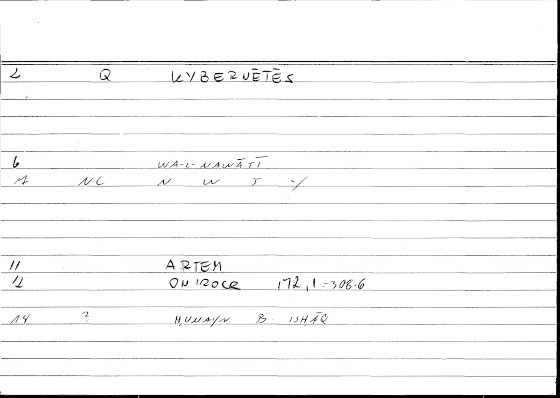 2 Q KYBERNĒTĒS
6 WA-L-NAWĀTĪ
11 NC N W T -Y
11 ARTEM
12 ONIROCR 172,1=308.6
14 ? ḤUNAYN B. ISḤĀQ